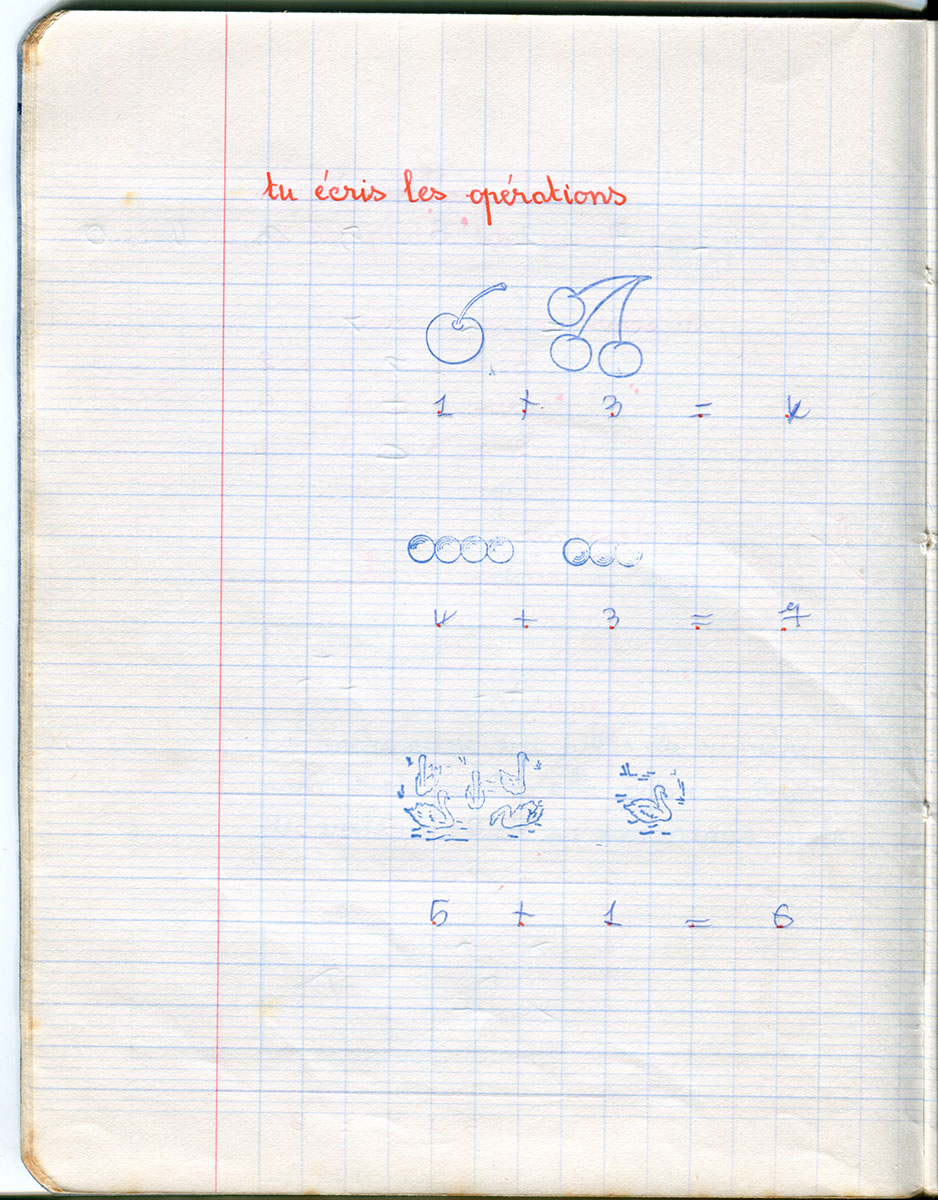 tu écris les opérations
1 + 3 = 4
4 + 3 = 7
5 + 1 = 6